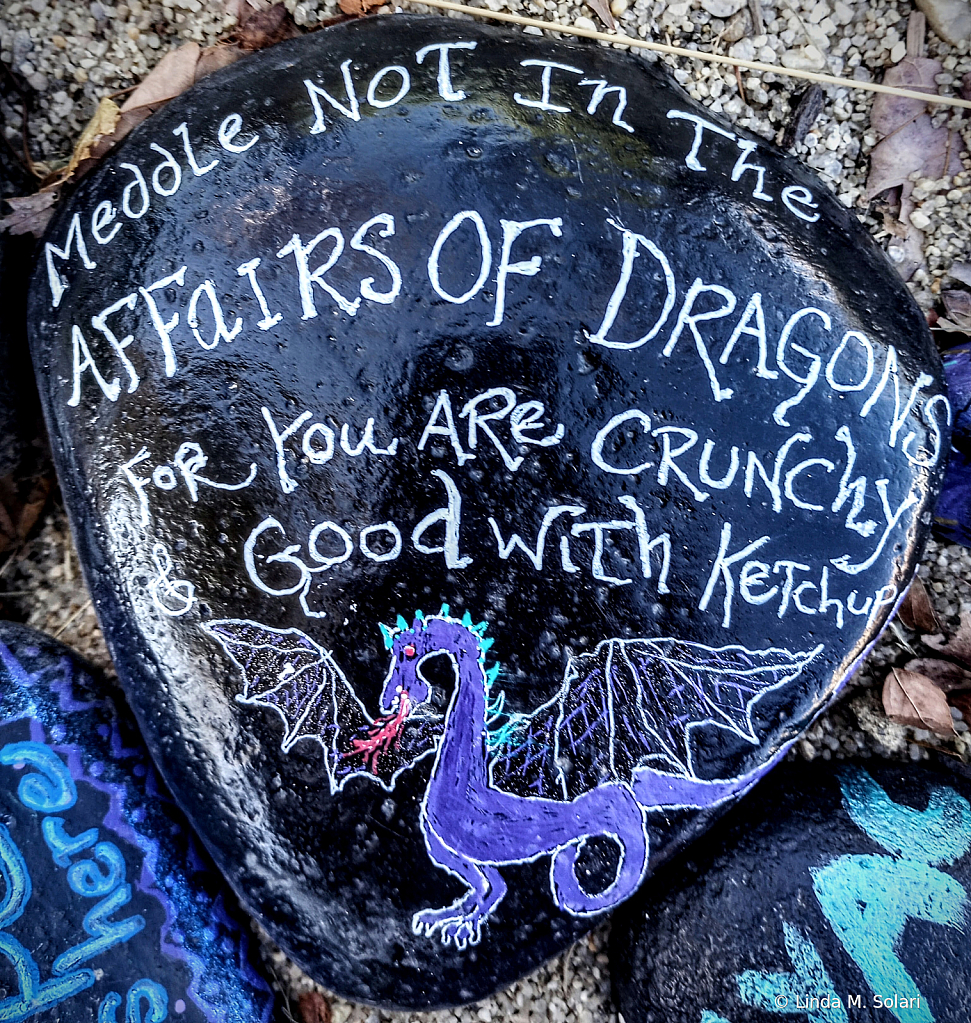 Meddle NOT In The
AFFaIRS OF DRAGONS
FOR YOU ARe CRUNChy
& Good WITh KeTchup
© Linda M. Solari